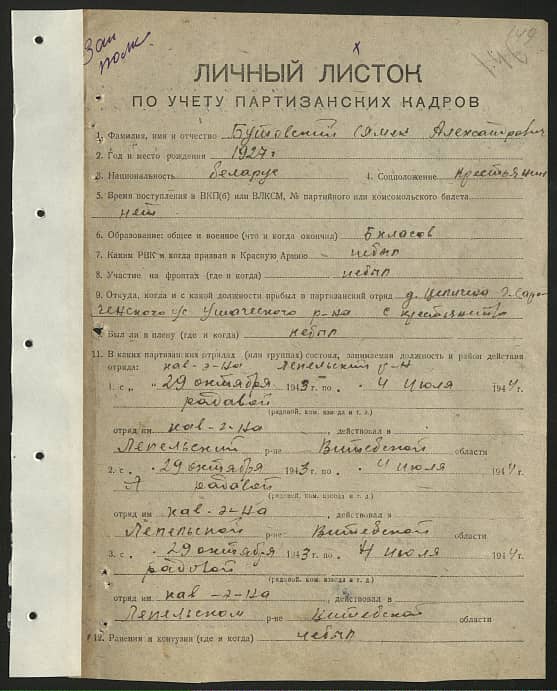 149
146
Зап
полк
х
ЛИЧНЫЙ ЛИСТОК
ПО УЧЕТУ ПАРТИЗАНСКИХ КАДРОВ
1. Фамилия, имя и отчество Бутовский Александрович
2. Год и место рождения 1927 г
3. Национальность беларус 4. Соцположение крестьянин
5. Время поступления в ВКП(б) или ВЛКСМ, № партийного или комсомольского билета
нет
6. Образование: общее и военное (что и когда окончил) 5 класов
7. Каким РВК и когда призван в Красную Армию небыл
8. Участие на фронтах (где и когда) небыл
9. Откуда, когда и с какой должности прибыл в партизанский отряд д.
Ушачского р-на с
10. Был ли в плену (где и когда) небыл
11. В каких партизанских отрядах (или группах) состоял, занимаемая должность и район действия
отряда: кав-э-на Лепельский р-н
1. с „ 29 октября 1943 г. по „ 4 июля 1944 г.
радавой
(рядовой, ком. взвода и т. д.)
отряд им кав-э-на , действовал в
Лепельский р-не Витебской области
2. с „ 29 октября 1943 г. по „ 4 июля 1944 г
А радавой
(рядовой, ком. взвода и т. д.)
отряд им кав-э-на , действовал в
Лепельской р-не Витебской области
3. с „ 29 октября 1943 г. по „ 4 июля 1944 г.
радовой
(рядовой, ком. взвода и т. д.)
отряд им кав-э-на , действовал в
Лепельском р-не Витебской области
12. Ранения и контузии (где и когда) небыл